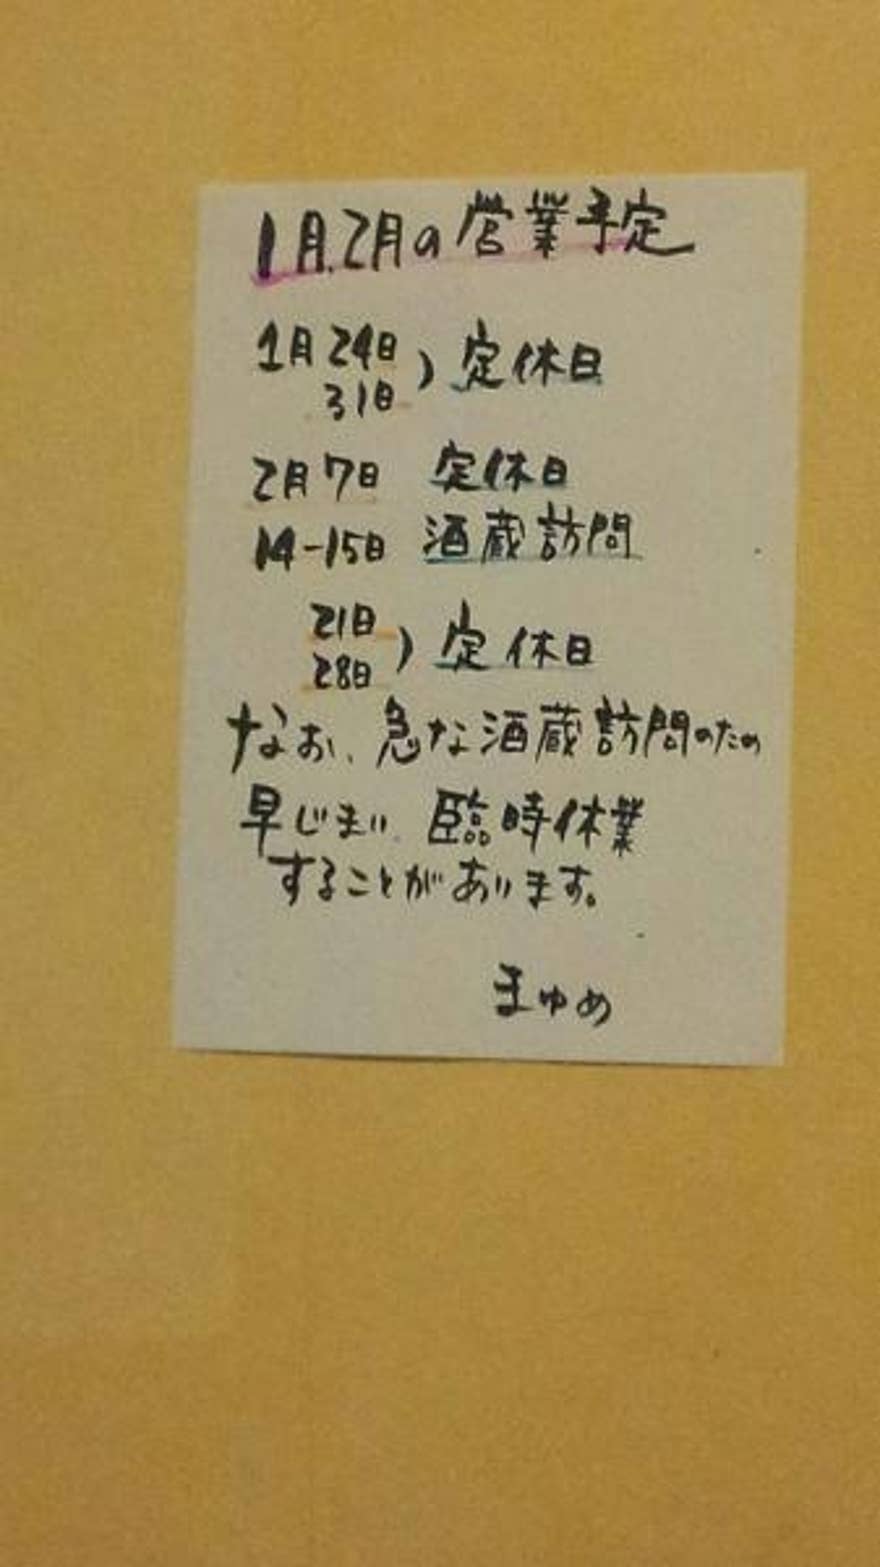 1月.2月の営業予定
1月24日
31日
) 定休日
2月7日 定休日
14-15日 酒蔵訪問
21日
28日
) 定休日
なお、急な酒蔵訪問のため
早じまい、臨時休業
することがあります。
まゆめ